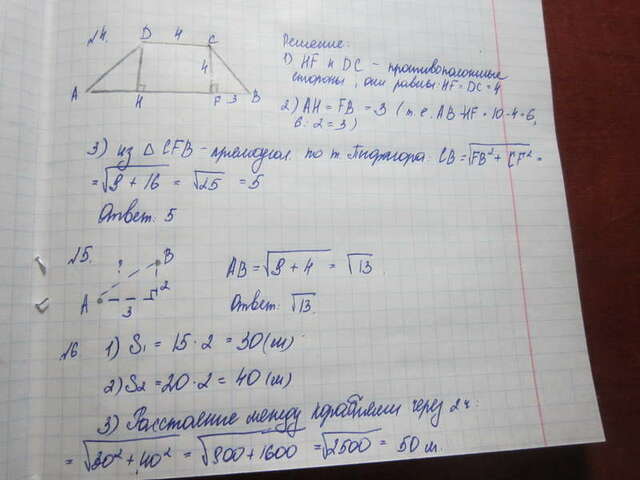 №4.
D 4 C
4
A H F 3 B
Решение:
1) HF и DC – противоположные
стороны, они равны HF = DC = 4
2) AH = FB = 3 (т.е. AB-HF = 10-4=6,
6:2=3)
3) из △ CFB – прямоугол. по т. Пифагора: CB = √FB² + CF² =
= √9 + 16 = √25 = 5
Ответ: 5
№5.
? B
A 3 2
AB = √9 + 4 = √13
Ответ: √13.
№6. 1) S₁ = 15 · 2 = 30 (м)
2) S₂ = 20 · 2 = 40 (м)
3) Расстояние между кораблями через 2 ч:
= √30² + 40² = √900 + 1600 = √2500 = 50 м.